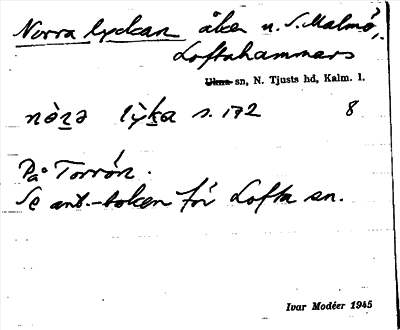 Norra lyckan åker n. S. Malmö,
Loftahammars
Ukna sn, N. Tjusts hd, Kalm. l.
nòṟə lỳḵa s. 172 8
På Torrön.
Se ant.-boken för Lofta sn.
Ivar Modéer 1945